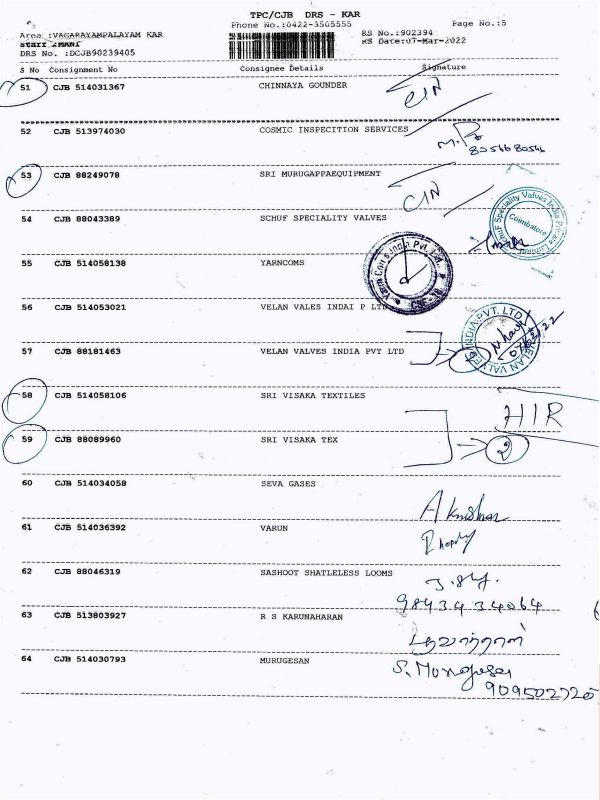 TPC/CJB DRS - KAR
Phone No.:0422-3505555
Page No.:5
Area :VAGARAYAMPALAYAM KAR
RS No.:902394
Staff :MANI
RS Date:07-Mar-2022
DRS No. :DCJB90239405
S No Consignment No Consignee Details Signature
51 CJB 514031367 CHINNAYA GOUNDER
CIN
52 CJB 513974030 COSMIC INSPECITION SERVICES
53 CJB 88249078 SRI MURUGAPPAEQUIPMENT
CIN
54 CJB 88043389 SCHUF SPECIALITY VALVES
Schuf Speciality Valves India Private Limited
Coimbatore
55 CJB 514058138 YARNCOMS
56 CJB 514053021 VELAN VALES INDAI P LTD
57 CJB 88181463 VELAN VALVES INDIA PVT LTD
VELAN VALVES INDIA PVT. LTD.
58 CJB 514058106 SRI VISAKA TEXTILES
HIR
59 CJB 88089960 SRI VISAKA TEX
2
60 CJB 514034058 SEVA GASES
61 CJB 514036392 VARUN
62 CJB 88046319 SASHOOT SHATLELESS LOOMS
9843434064
63 CJB 513803927 R S KARUNAHARAN
64 CJB 514030793 MURUGESAN
S. Murugesan